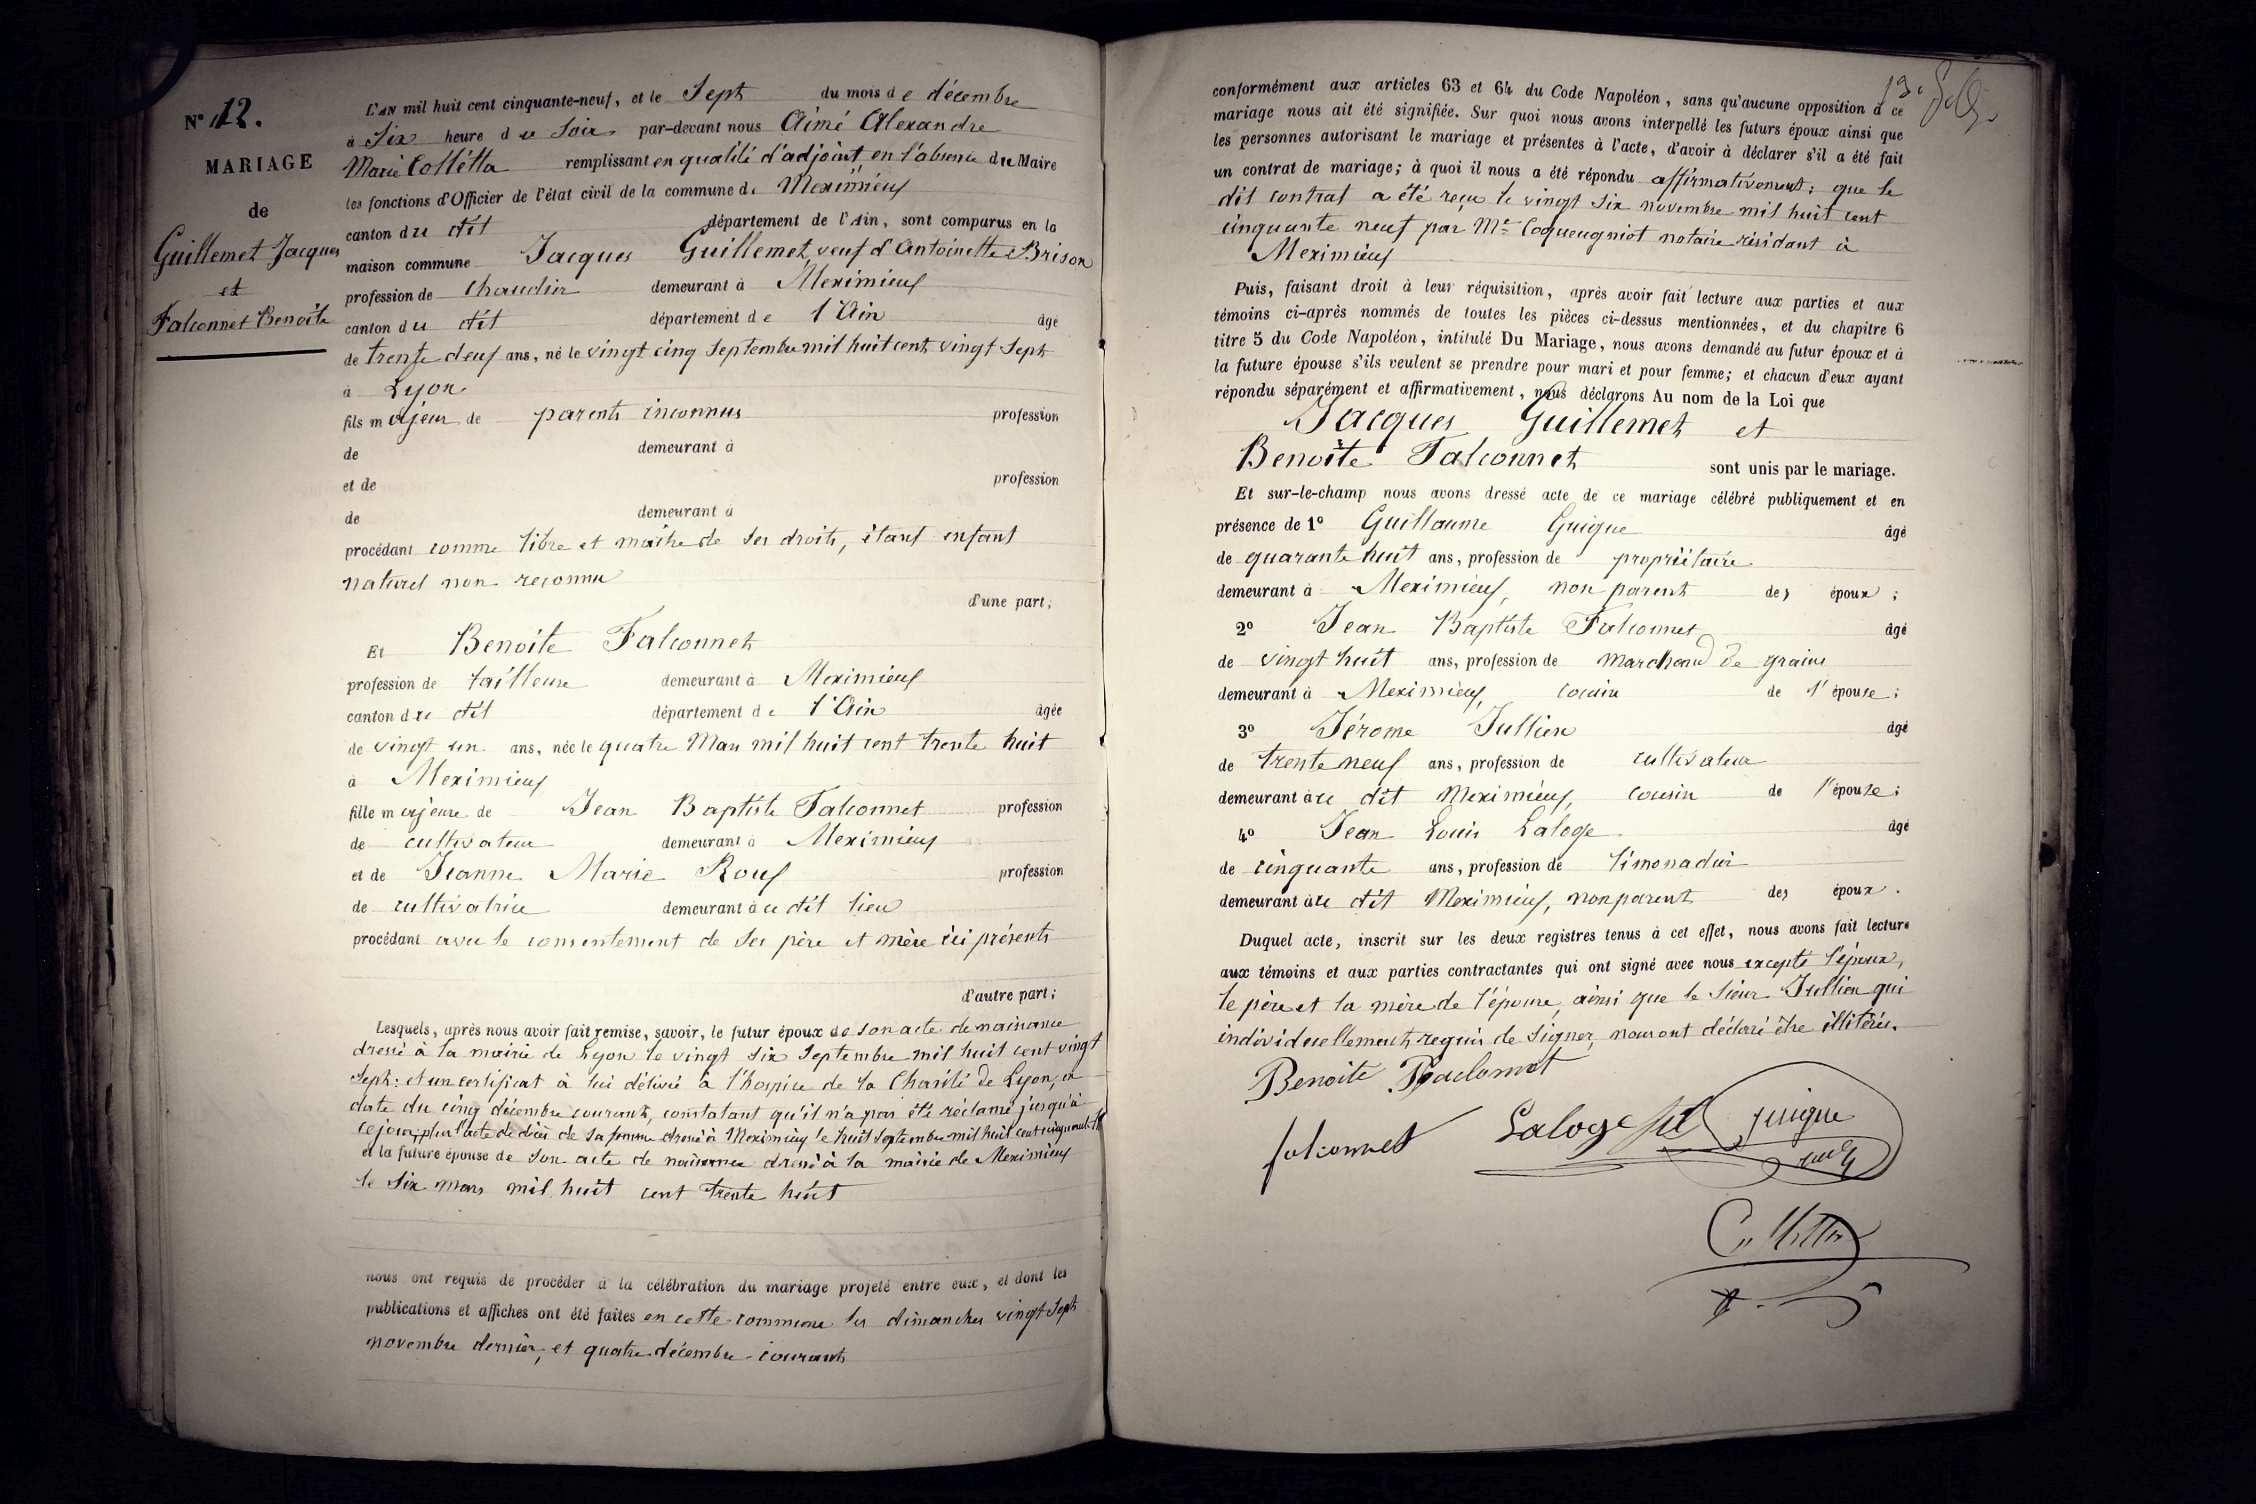 N° 12.
MARIAGE
de
Guillemet Jacques
et
Falconnet Benoîte
L'AN mil huit cent cinquante-neuf, et le Sept du mois de décembre
à Six heure du Soir par-devant nous Aimé Alexandre
Marie Collétta remplissant en qualité d'adjoint en l'absence du Maire
les fonctions d'Officier de l'état civil de la commune de Meximieux
canton du dit département de l'Ain, sont comparus en la
maison commune Jacques Guillemet, veuf d'Antoinette Brison
profession de chaudier demeurant à Meximieux
canton du dit département de l'Ain âgé
de trente deux ans, né le vingt cinq Septembre mil huit cent vingt Sept
à Lyon
fils majeur de parents inconnus profession
de demeurant à
et de profession
de demeurant à
procédant comme libre et maître de ses droits, étant enfant
naturel non reconnu
d'une part;
Et Benoîte Falconnet
profession de tailleuse demeurant à Meximieux
canton du dit département de l'Ain âgée
de vingt un ans, née le quatre Mars mil huit cent trente huit
à Meximieux
fille majeure de Jean Baptiste Falconnet profession
de cultivateur demeurant à Meximieux
et de Jeanne Marie Roux profession
de cultivatrice demeurant à ce dit lieu
procédant avec le consentement de ses père et mère ici présents
d'autre part;
Lesquels, après nous avoir fait remise, savoir, le futur époux de son acte de naissance
dressé à la mairie de Lyon le vingt six Septembre mil huit cent vingt
Sept: et un certificat à lui délivré à l'hospice de la Charité de Lyon, en
date du cinq décembre courant, constatant qu'il n'a pas été réclamé jusqu'à
ce jour, plus l'acte de décès de sa femme dressé à Meximieux le huit Septembre mil huit cent cinquante
et la future épouse de son acte de naissance dressé à la mairie de Meximieux
le six mars mil huit cent trente huit
nous ont requis de procéder à la célébration du mariage projeté entre eux, et dont les
publications et affiches ont été faites en cette commune les dimanches vingt Sept
novembre dernier, et quatre décembre courant
conformément aux articles 63 et 64 du Code Napoléon, sans qu'aucune opposition à ce
mariage nous ait été signifiée. Sur quoi nous avons interpellé les futurs époux ainsi que
les personnes autorisant le mariage et présentes à l'acte, d'avoir à déclarer s'il a été fait
un contrat de mariage; à quoi il nous a été répondu affirmativement: que le
dit contrat a été reçu le vingt six novembre mil huit cent
cinquante neuf par Me Coqueugniot notaire résidant à
Meximieux
Puis, faisant droit à leur réquisition, après avoir fait lecture aux parties et aux
témoins ci-après nommés de toutes les pièces ci-dessus mentionnées, et du chapitre 6
titre 5 du Code Napoléon, intitulé Du Mariage, nous avons demandé au futur époux et à
la future épouse s'ils veulent se prendre pour mari et pour femme; et chacun d'eux ayant
répondu séparément et affirmativement, nous déclarons Au nom de la Loi que
Jacques Guillemet et
Benoîte Falconnet sont unis par le mariage.
Et sur-le-champ nous avons dressé acte de ce mariage célébré publiquement et en
présence de 1° Guillaume Guigue âgé
de quarante huit ans, profession de propriétaire
demeurant à Meximieux, non parent des époux ;
2° Jean Baptiste Falconnet âgé
de vingt huit ans, profession de marchand de grains
demeurant à Meximieux, cousin de l'épouse ;
3° Jérome Jullien âgé
de trente neuf ans, profession de cultivateur
demeurant à ce dit Meximieux, cousin de l'épouse ;
4° Jean Louis Laloge âgé
de cinquante ans, profession de limonadier
demeurant à ce dit Meximieux, non parent des époux .
Duquel acte, inscrit sur les deux registres tenus à cet effet, nous avons fait lecture
aux témoins et aux parties contractantes qui ont signé avec nous excepté l'époux,
le père et la mère de l'épouse, ainsi que le Sieur Jullien qui
individuellement requis de signer, nous ont déclaré être illitérés.
Benoite
falconnet Laloge guigue